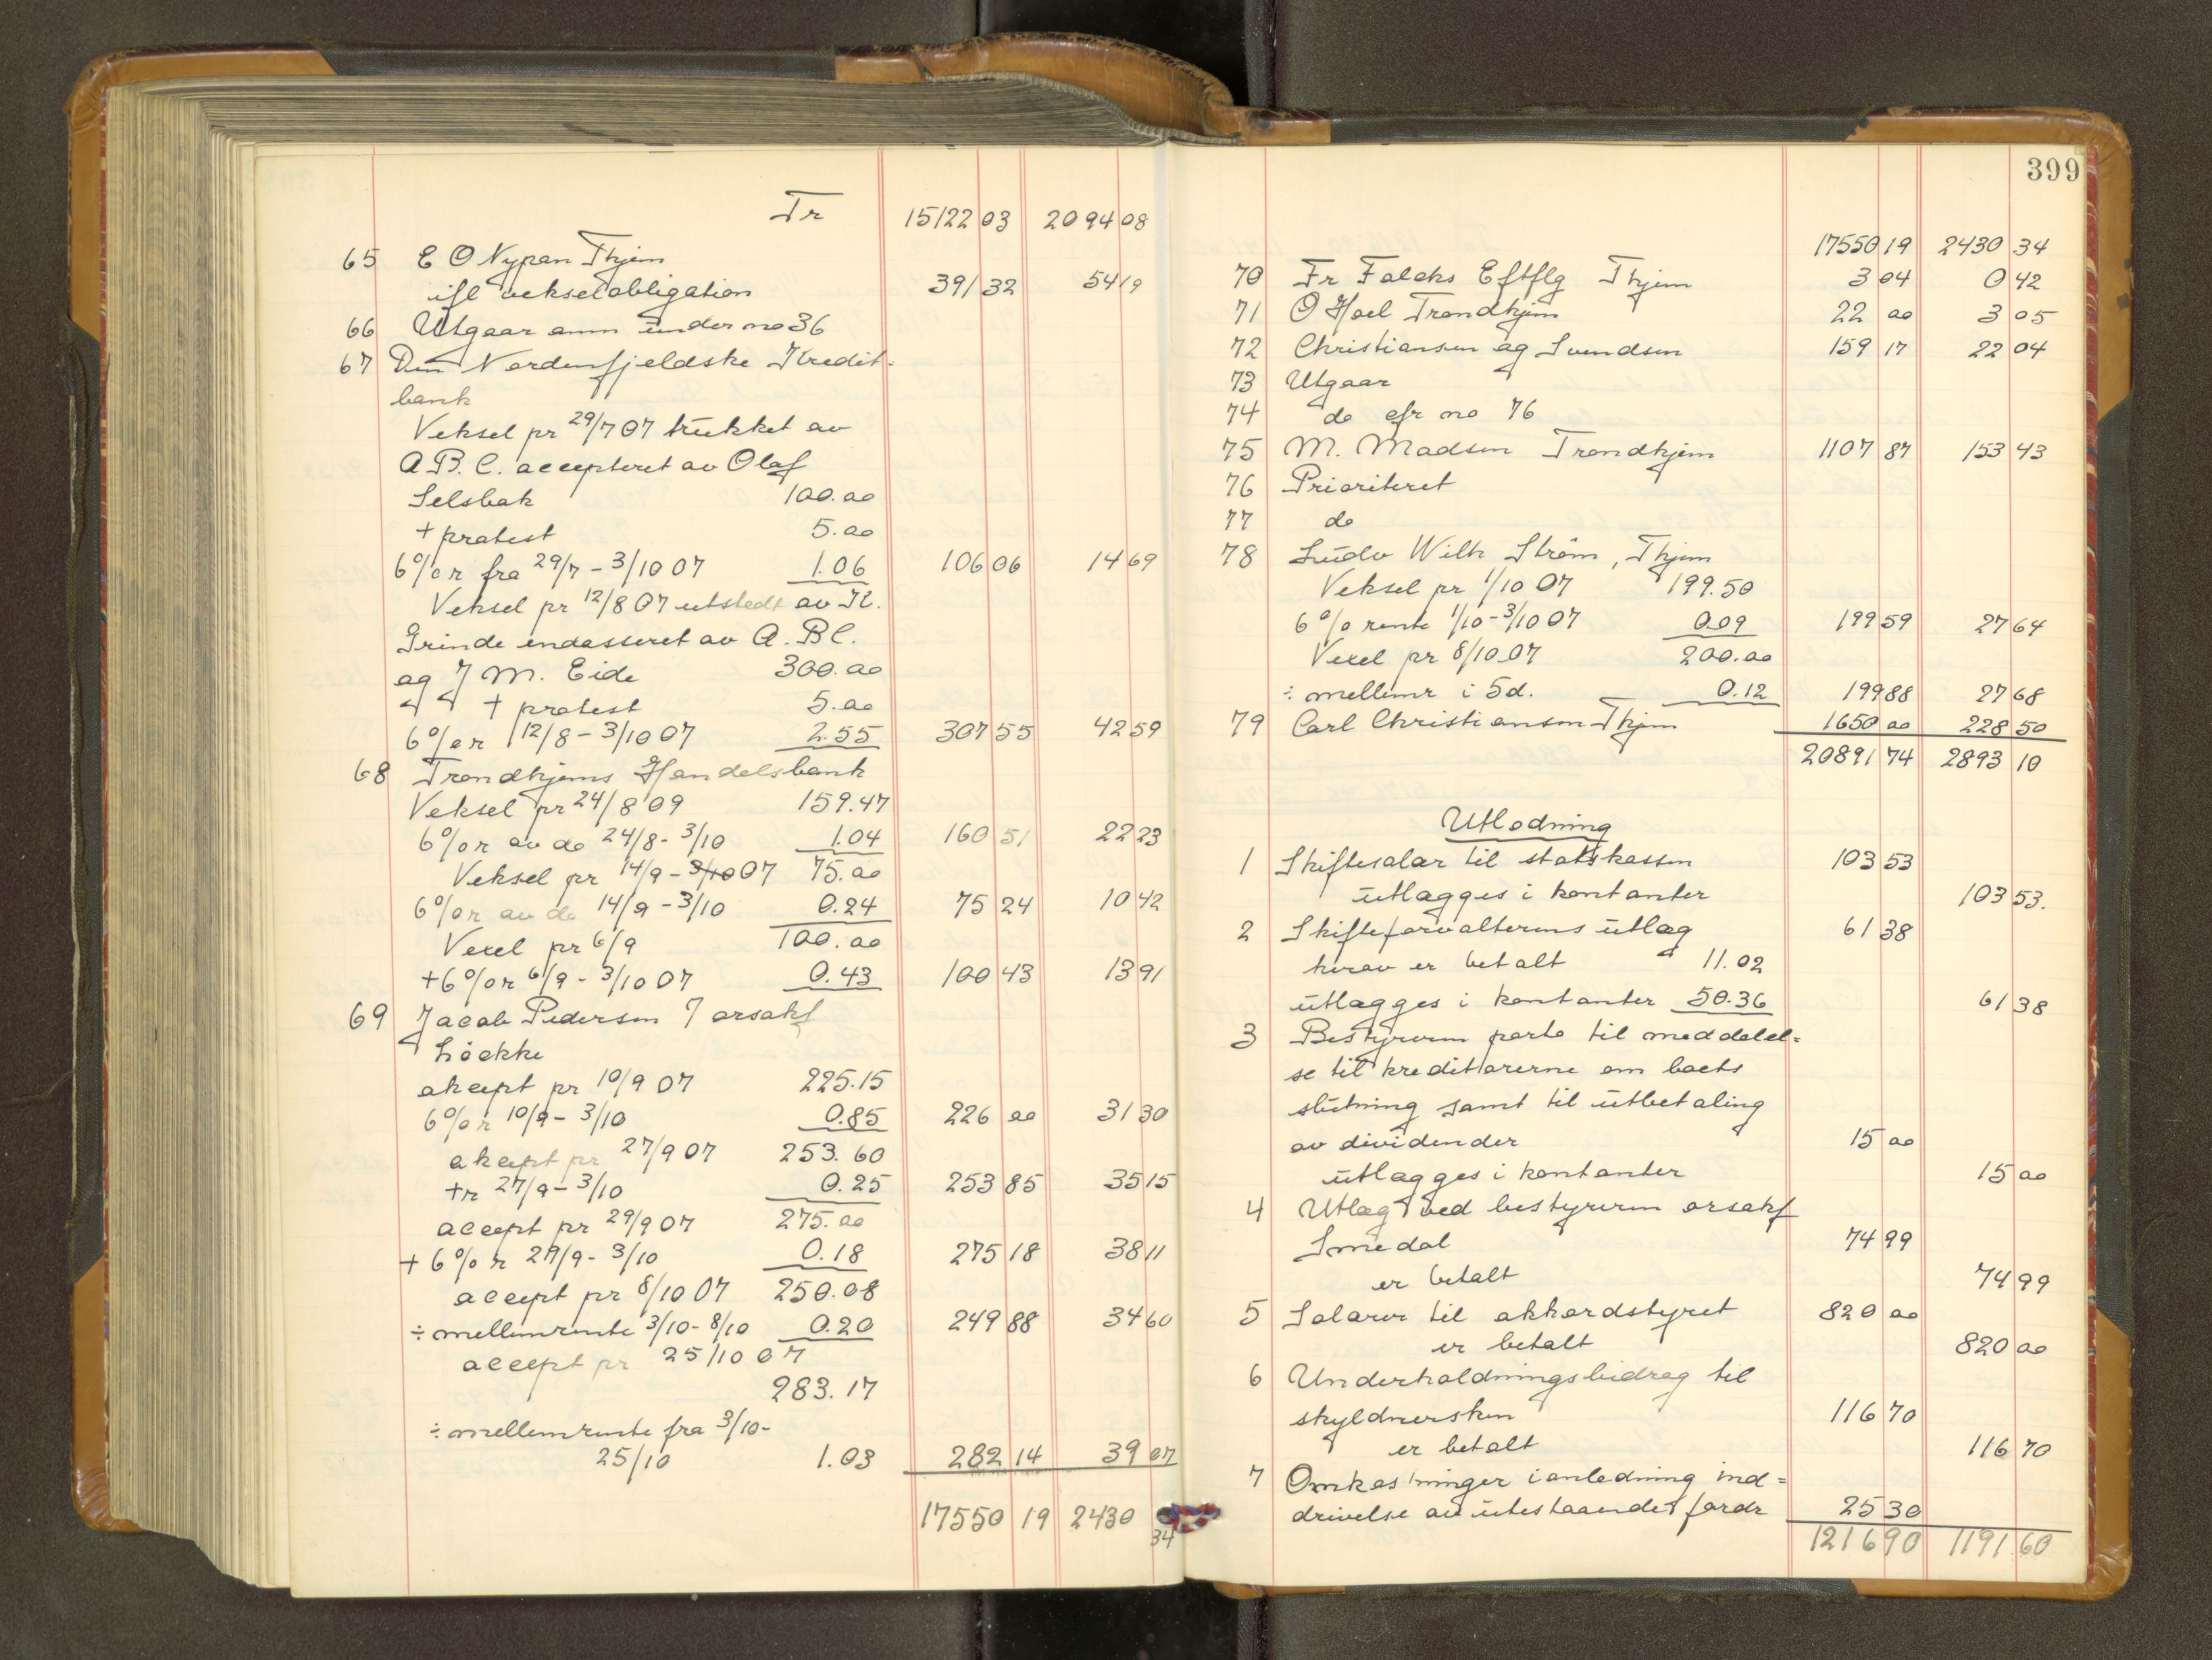 Tr 15122 03 2094 08
65 E O Nypan Thjem
ifl vekselobligation 391 32 54 19
66 Utgaar anm under no 36
67 Den Nordenfjeldske Kredit-
bank
Veksel pr 29/7 07 trukket av
A.B.C. accepteret av Olaf
Selsbak 100.00
+ protest 5.00
6% r fra 29/7 - 3/10 07 1.06 106 06 14 69
Veksel pr 12/8 07 utstedt av K.
Grinde endasseret av A.B.C.
og J M. Eide 300.00
+ protest 5.00
6% r 12/8 - 3/10 07 2.55 307 55 42 59
68 Trondhjems Handelsbank
Veksel pr 24/8 09 159.47
6% r av do 24/8 - 3/10 1.04 160 51 22 23
Veksel pr 14/9 - 3/10 07 75.00
6% r av do 14/9 - 3/10 0.24 75 24 10 42
Vexel pr 6/9 100.00
+ 6% r 6/9 - 3/10 07 0.43 100 43 13 91
69 Jacob Pedersen J orsakf
Löckke
akcept pr 10/9 07 225.15
6% r 10/9 - 3/10 0.85 226 00 31 30
akcept pr 27/9 07 253.60
+ r 27/9 - 3/10 0.25 253 85 35 15
accept pr 29/9 07 275.00
+ 6% r 29/9 - 3/10 0.18 275 18 38 11
accept pr 8/10 07 250.08
÷ mellemrente 3/10 - 8/10 0.20 249 88 34 60
accept pr 25/10 07
283.17
÷ mellemrente fra 3/10 -
25/10 1.03 282 14 39 07
17550 19 2430 34
399
17550 19 2430 34
70 Fr Falcks Eftflg Thjem 3 04 0 42
71 O Hoel Trondhjem 22 00 3 05
72 Christiansen og Svendsen 159 17 22 04
73 Utgaar
74 do cfr no 76
75 M. Madsen Trondhjem 1107 87 153 43
76 Prioriteret
77 do
78 Ludv Wilh Ström, Thjem
Veksel pr 1/10 07 199.50
6% rente 1/10 - 3/10 07 0.09 199 59 27 64
Vexel pr 8/10 07 200.00
÷ mellemr i 5d. 0.12 199 88 27 68
79 Carl Christiansen Thjem 1650 00 228 50
20891 74 2893 10
Utlodning
1 Skiftesalar til statskassen 103 53
utlægges i kontanter 103 53.
2 Skifteforvalterens utlæg 61 38
herav er betalt 11.02
utlægges i kontanter 50.36 61 38
3 Bestyreren porto til meddelel=
se til kreditorerne om boets
slutning samt til utbetaling
av dividender 15 00
utlægges i kontanter 15 00
4 Utlæg ved bestyreren orsakf
Smedal 74 99
er betalt 74 99
5 Salarer til akkordstyret 820 00
er betalt 820 00
6 Underholdningsbidrag til
skyldnersken 116 70
er betalt 116 70
7 Omkostninger i anledning ind=
drivelse av utestaaende fordr 25 30
1216 90 1191 60